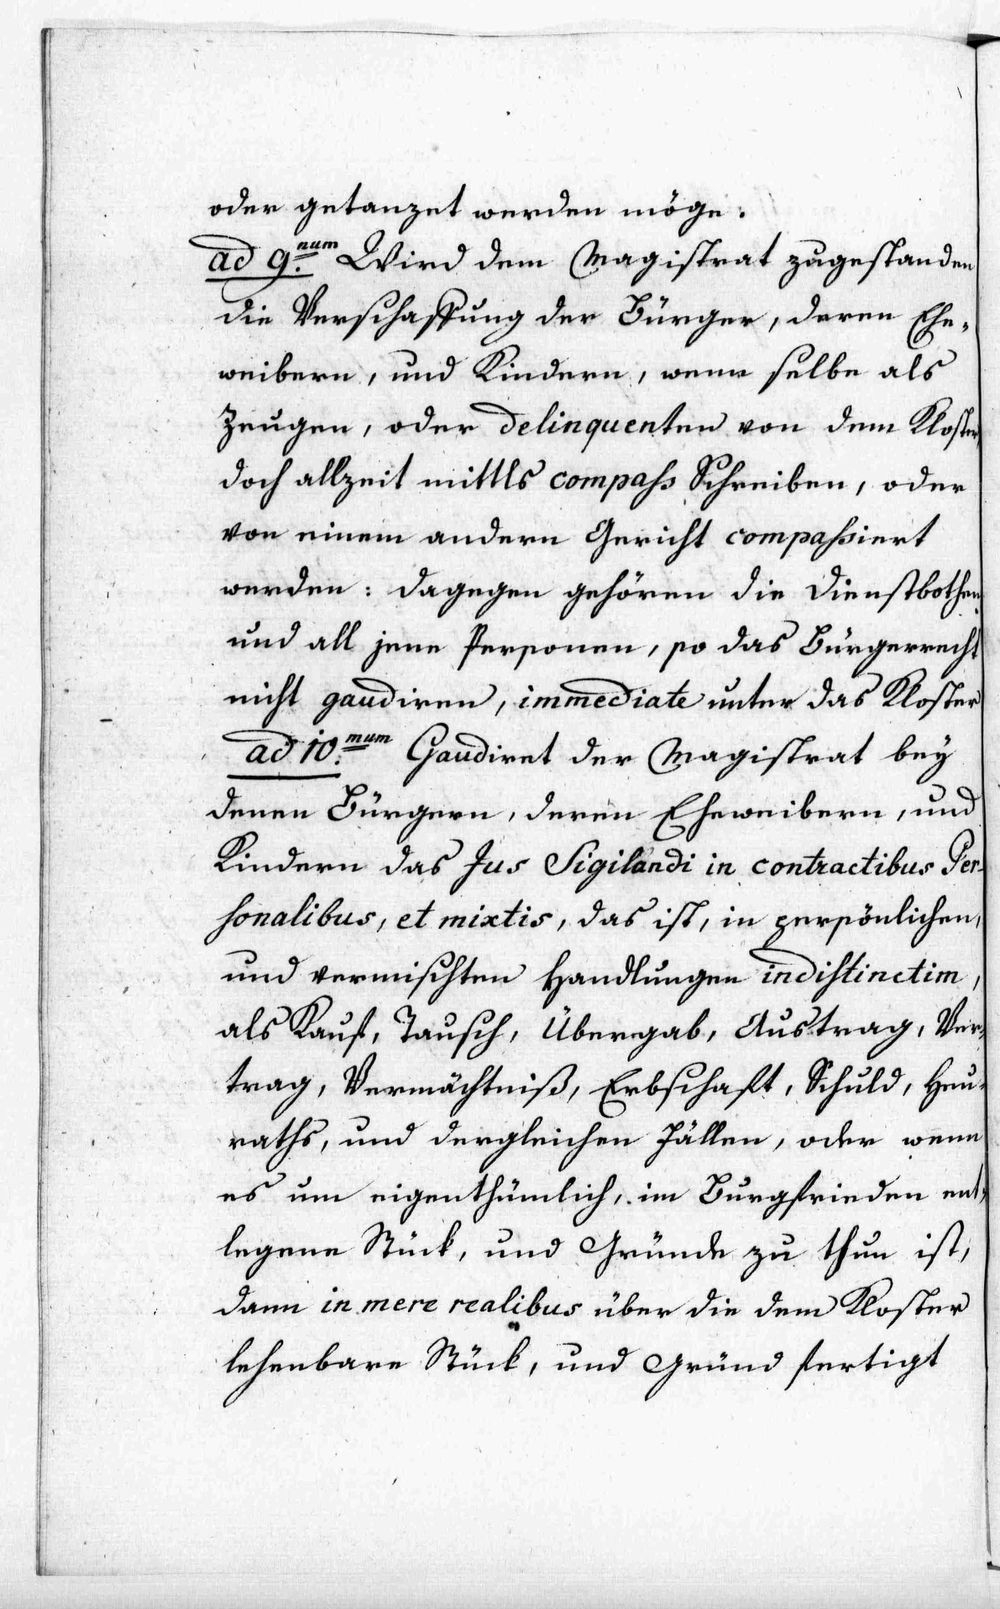 oder getanzet werden möge.
ad 9.num Wird dem Magistrat zugestanden
die Verschaffung der Bürger, deren Ehe-
weibern, und Kindern, wenn selbe als
Zeugen, oder delinquenten von dem Kloster
doch allzeit mittls compass Schreiben, oder
von einem andern Gericht compassiert
werden: dagegen gehören die Dienstbothen
und all jene Personen, so das Bürgerrecht
nicht gaudiren, immediate unter das Kloster
ad 10.mum Gaudiret der Magistrat bey
denen Bürgern, deren Eheweibern, und
Kindern das Jus Sigilandi in contractibus Per-
sonalibus, et mixtis, das ist, in persönlichen,
und vermischten Handlungen indistinctim,
als Kauf, Tausch, Übergab, Austrag, Ver-
trag, Vermächtniß, Erbschaft, Schuld, Heu-
raths, und dergleichen Fällen, oder wenn
es um eigenthümlich, im Burgfrieden ent-
legene Stück, und Gründe zu thun ist,
dann in mere realibus über die dem Kloster
lehenbare Stück, und Gründ fertigt